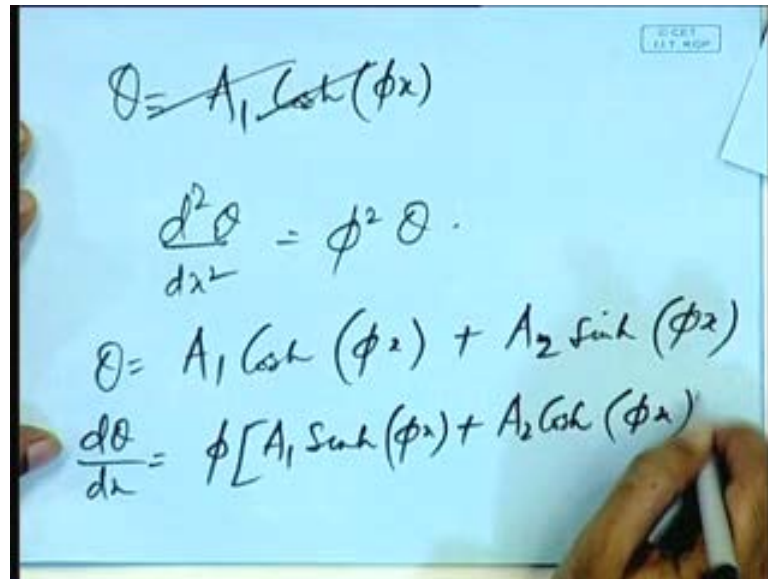 © CET
I.I.T. KGP
θ = A₁ Cosh (φx)
d²θ/dx² = φ² θ .
θ = A₁ Cosh (φx) + A₂ Sinh (φx)
dθ/dx = φ [A₁ Sinh (φx) + A₂ Cosh (φx)